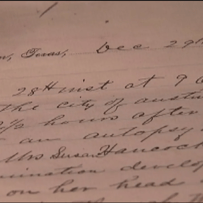 Texas, Dec 29th
28th inst at 9 O
the city of Austin
1/2 hours after
an autopsy
Mrs Susan Hancock
mination develop
on her head